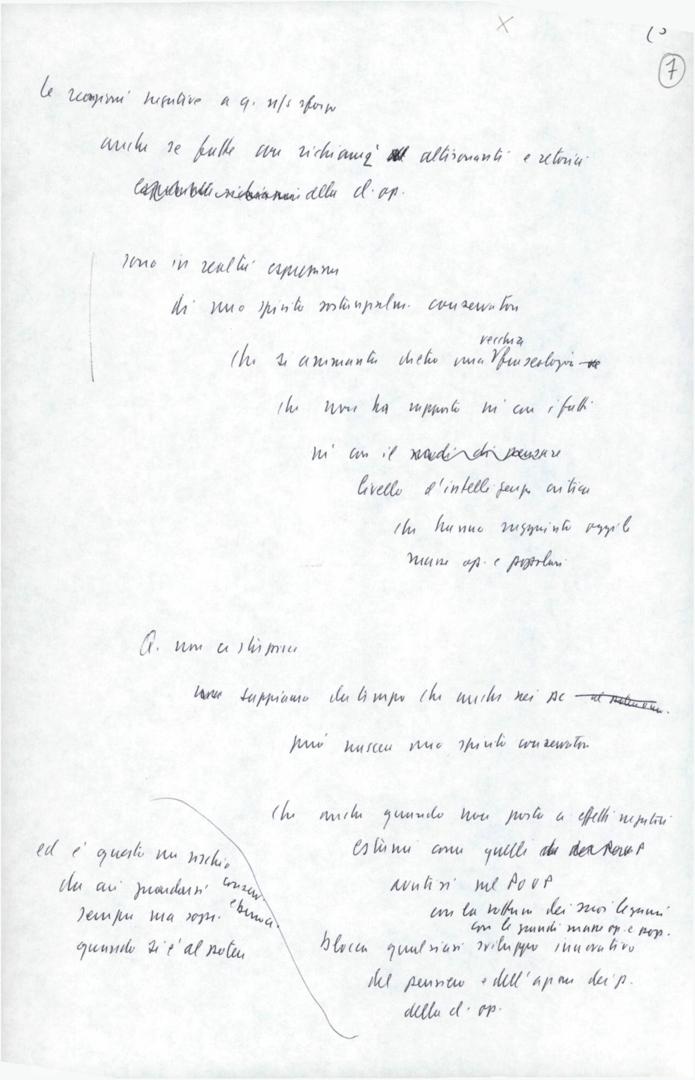 7
le reazioni negative a q. n/s sforzo
anche se fatte con richiami altisonanti e retorici
della cl. op.
sono in realtà espressioni
di uno spirito sostanzialm. conservatore
che si ammanta dietro una vecchia fraseologia
che non ha rapporto né con i fatti
né con il modi di pensare
livello d'intelligenza critica
che hanno raggiunto oggi le
masse op. e popolari
Q. non ci stupisce
sappiamo da tempo che anche nei PC
può nascere uno spirito conservatore
che anche quando non porta a effetti negativi
estremi come quelli
avutisi nel POUP
con la rottura dei suoi legami
con le grandi masse op. e pop.
blocca qualsiasi sviluppo innovativo
del pensiero e dell'azione dei p.
della cl. op.
ed è questo un rischio
da cui guardarsi
sempre ma sopr.
quando si è al potere